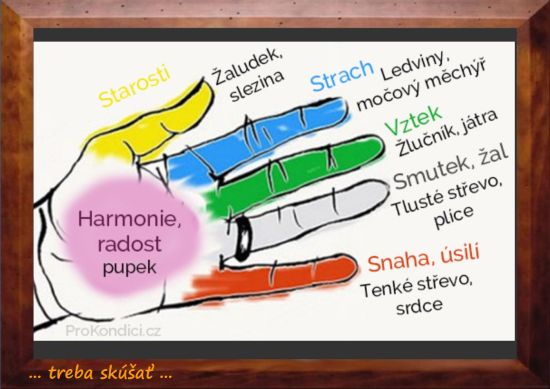 Starosti
Žaludek,
slezina
Strach
Ledviny,
močový měchýř
Vztek
Žlučník, játra
Smutek, žal
Tlusté střevo,
plíce
Harmonie,
radost
pupek
Snaha, úsilí
Tenké střevo,
srdce
ProKondici.cz
... treba skúšať ...